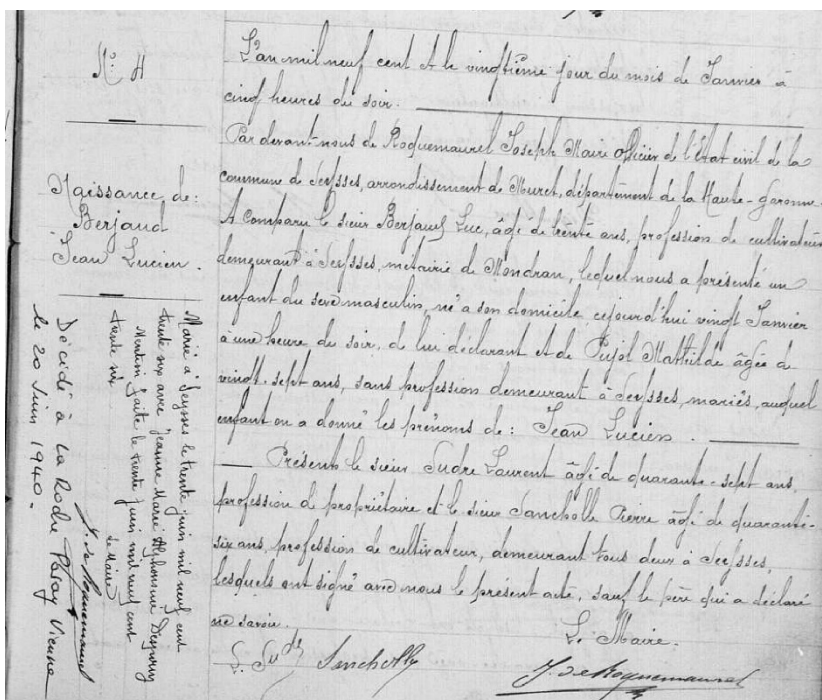 N° 4
Naissance de:
Berjaud
Jean Lucien.
Marié à Seysses le trente juin mil neuf cent
trente six avec Jeanne Marie Alphonsine
Mention faite le trente juin mil neuf cent
trente six
Le Maire
J. de Roquemaurel
Décédé à La Roche Posay Vienne
le 20 Juin 1940.
L'an mil neuf cent et le vingtième jour du mois de Janvier à
cinq heures du soir.
Par devant nous de Roquemaurel Joseph Maire Officier de l'Etat civil de la
commune de Seysses, arrondissement de Muret, département de la Haute-Garonne.
A comparu le sieur Berjaud Luc, âgé de trente ans, profession de cultivateur
demeurant à Seysses, métairie de Mondran, lequel nous a présenté un
enfant du sexe masculin, né a son domicile cejourd'hui vingt Janvier
à une heure du soir, de lui déclarant et de Pujol Mathilde âgée de
vingt-sept ans, sans profession demeurant à Seysses, mariés, auquel
enfant on a donné les prénoms de: Jean Lucien.
Présents le sieur Sudre Laurent âgé de quarante-sept ans,
profession de propriétaire et le sieur Sancholle Pierre âgé de quarante-
six ans, profession de cultivateur, demeurant tous deux à Seysses,
lesquels ont signé avec nous le présent acte, sauf le père qui a déclaré
ne savoir.
Le Maire.
L. Sudre Sancholle
J. de Roquemaurel